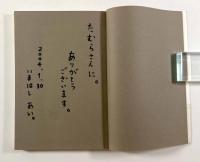 たむらさんに。
ありがとう
ございます。
2004.1.30
いまはし あい。